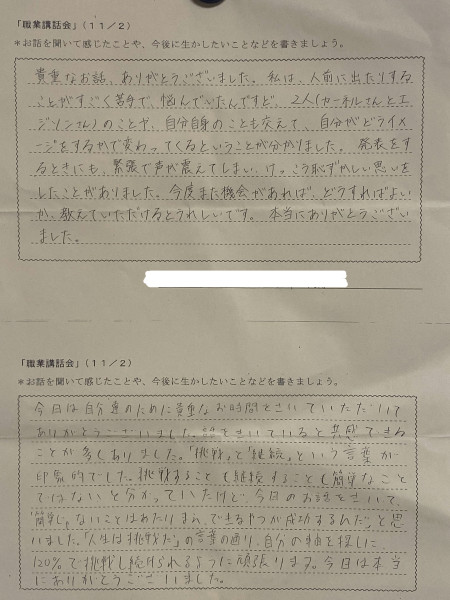 「職業講話会」(11/2)
*お話を聞いて感じたことや、今後に生かしたいことなどを書きましょう。
貴重なお話、ありがとうございました。私は、人前に出たりする
ことがすごく苦手で、悩んでいたんですど、2人(カーネルさんとエ
ジソンさん)のことや、自分自身のことも交えて、自分がどうイメ
ージをするかで変わってくるということが分かりました。発表をす
るときにも、緊張で声が震えてしまい、けっこう恥ずかしい思いを
したことがありました。今度また機会があれば、どうすればよい
か、教えていただけるとうれしいです。本当にありがとうござい
ました。
「職業講話会」(11/2)
*お話を聞いて感じたことや、今後に生かしたいことなどを書きましょう。
今日は自分達のために貴重なお時間をさいていただいて
ありがとうございました。話をきいていると共感できる
ことが多くありました。「挑戦」と「継続」という言葉が
印象的でした。挑戦することも継続することも簡単なこと
ではないと分かっていたけど、今日のお話をきいて、
「簡単じゃないことはあたりまえ、できるやつが成功するんだ」と思
いました。「人生は挑戦だ」の言葉の通り、自分の を探しに
120%で挑戦し続けられるように頑張ります。今日は本当
にありがとうございました。